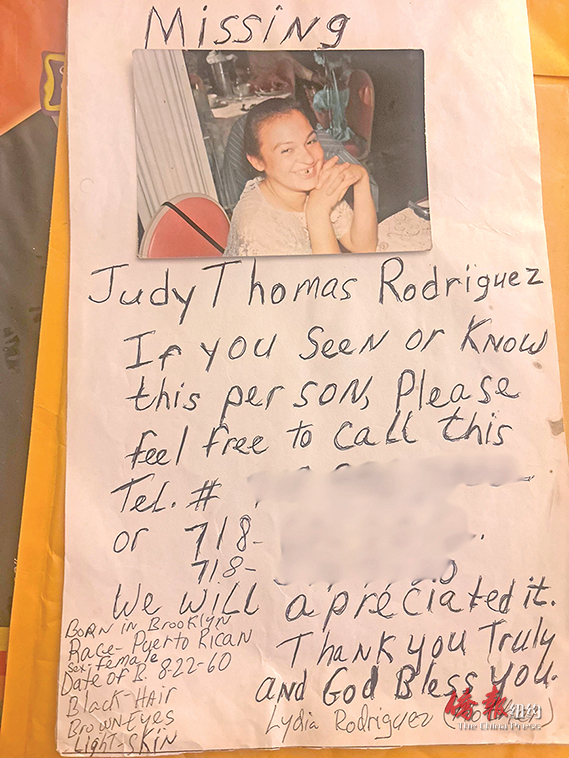 Missing
Judy Thomas Rodriguez
If you seen or know
this person, Please
feel free to call this
Tel. #
or 718-
718-
We will apréciated it.
Born in Brooklyn
Race- Puerto Rican
Sex- Female
Date of B. 8-22-60
Black-Hair
Brown Eyes
Light-Skin
Thank you Truly
and God Bless You.
Lydia Rodriguez
侨报纽约
The China Press